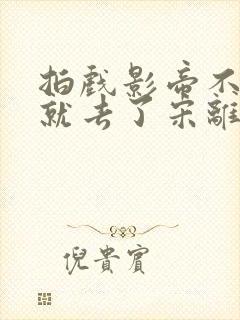 拍戏影帝不
就去了宋離
倪貴賓